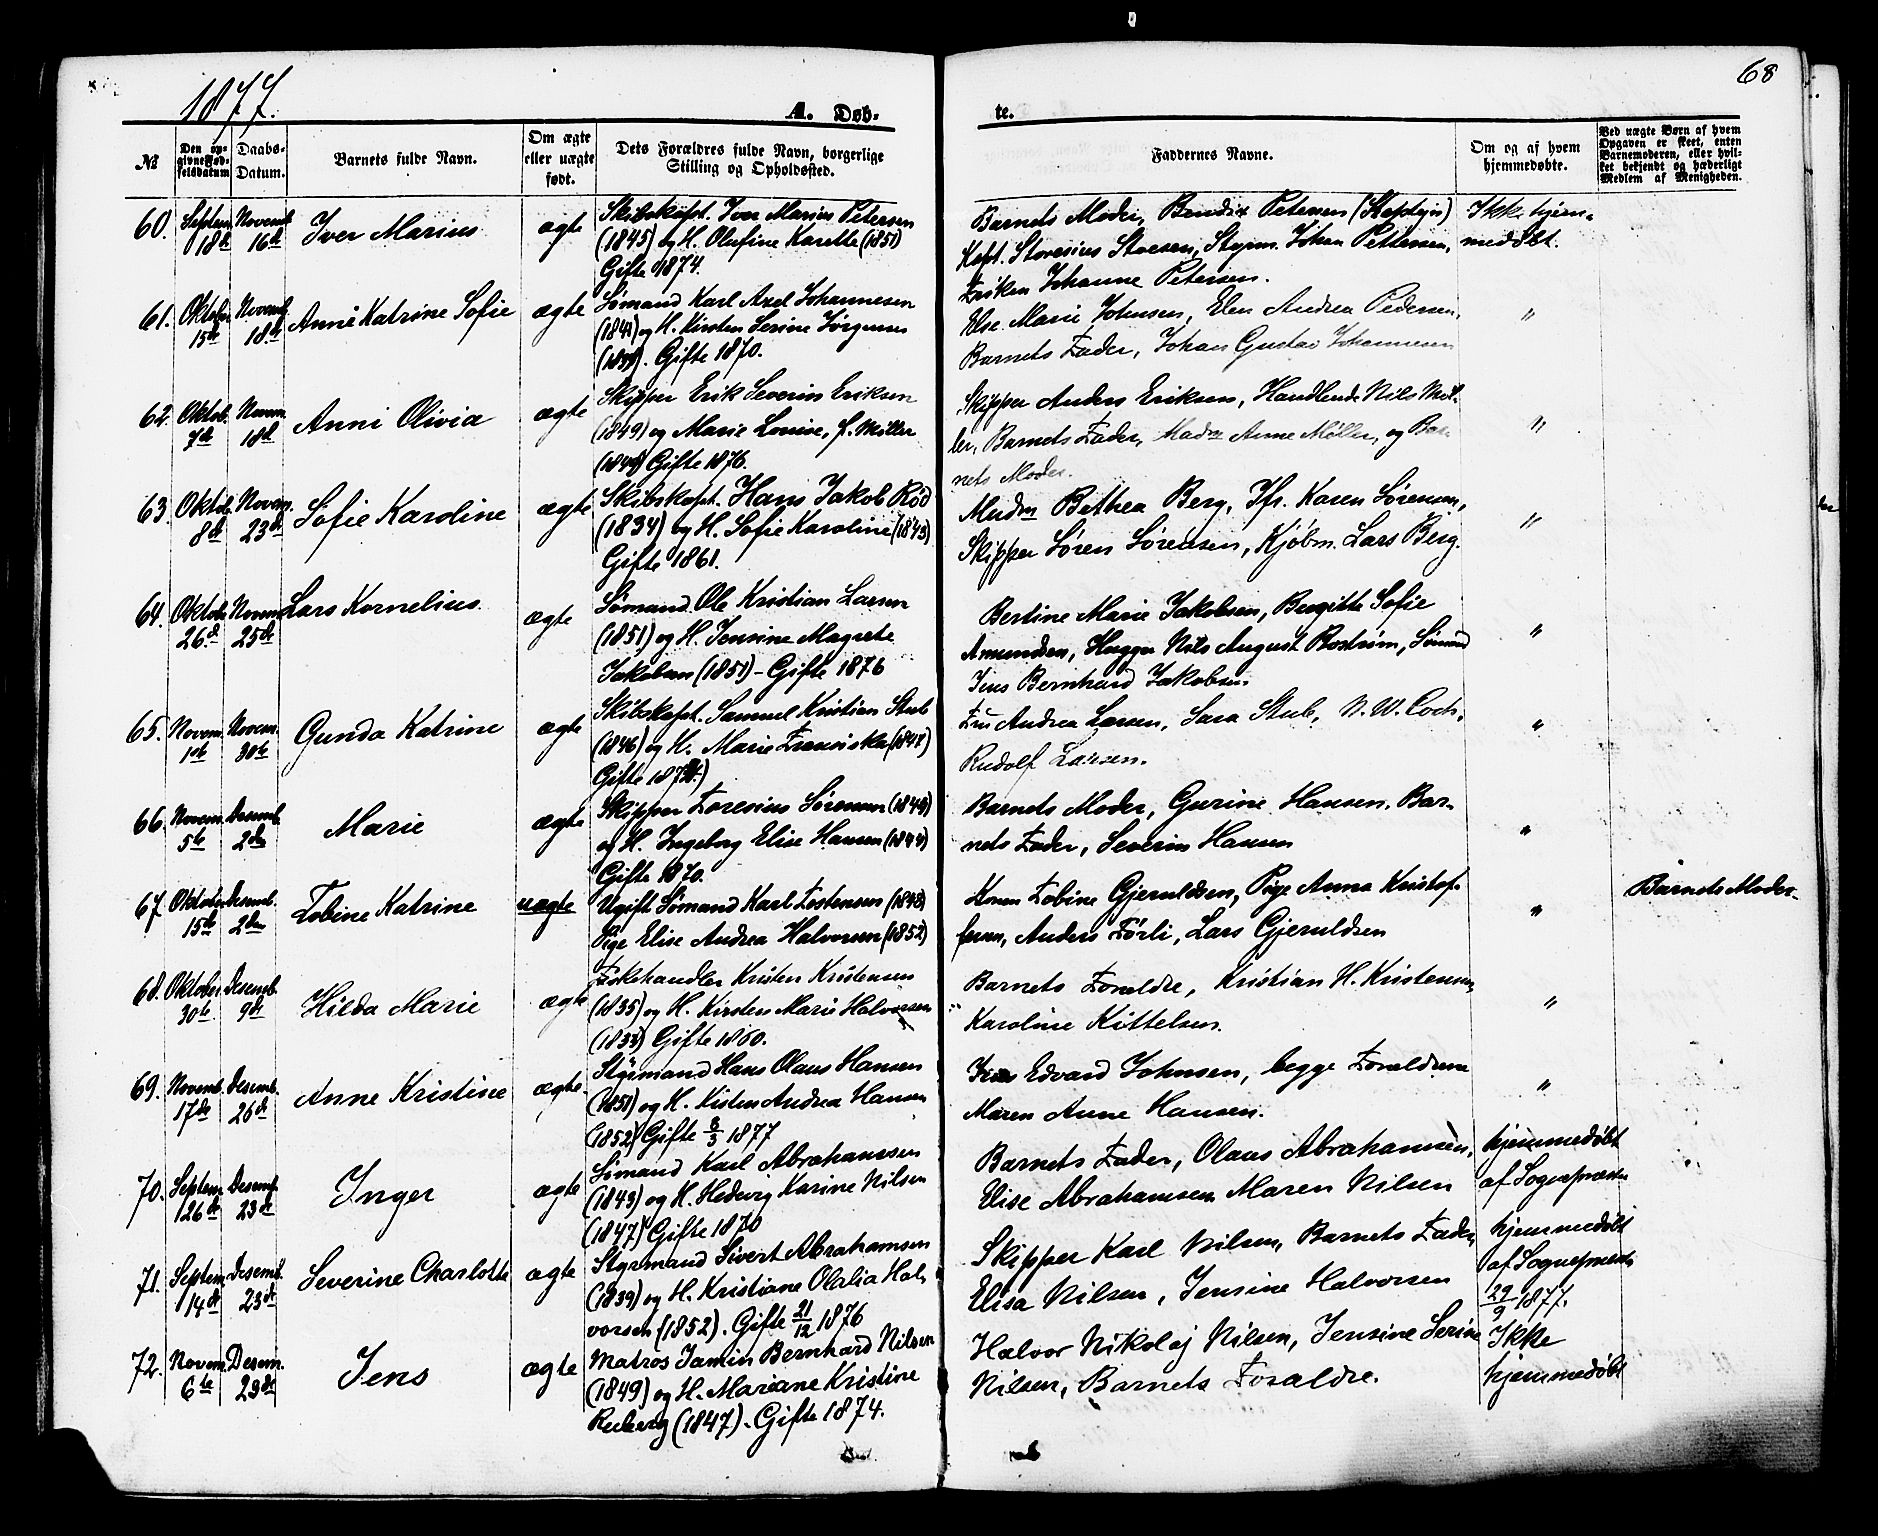 1877.
68
A. Døb-
te.
№
Den op-
givne Fød-
selsdatum
Daabs-
Datum.
Barnets fulde Navn.
Om ægte
eller uægte
født.
Dets Forældres fulde Navn, borgerlige
Stilling og Opholdssted.
Faddernes Navne.
Om og af hvem
hjemmedøbte.
Ved uægte Børn af hvem
Opgaven er skeet, enten
Barnemoderen, eller hvil-
ket bekjendt og hæderligt
Medlem af Menigheden.
60.
Septem.
18de
Novemb.
16de
Iver Marius
ægte
Skibskapt. Iver Marius Petersen
(1845) og H. Olufine Karette (1851)
Gifte 1874.
Barnets Moder, Bendix Petersen (Kaptejn)
Kapt. Storesen, Styrm. Johan Pettersen,
Frøken Johanne Petersen.
Ikke hjem-
medøbt.
61.
Oktober
15de
Novemb.
18de
Anne Katrine Sofie
ægte
Sømand Karl Axel Johannesen
og H. Kirsten Serine Jørgensen
Gifte 1870.
Else Marie Johnsen, Elen Andrea Pedersen,
Barnets Fader, Johan Gustav Johannesen
"
62.
Oktob.
7de
Novem.
18de
Anni Olivia
ægte
Skipper Erik Severin Eriksen
(1849) og Marie Louise, f. Møller
Gifte 1876.
Skipper Anders Eriksen, Handlende Nils Møl-
ler, Barnets Fader, Madm Anne Møller, og Bar-
nets Moder.
"
63.
Oktob.
8de
Novem.
23de
Sofie Karoline
ægte
Skibskapt. Hans Jakob Rød
(1834) og H. Sofie Karoline (1843)
Gifte 1861.
Madm Bethea Berg, Jfr. Karen Sørensen,
Skipper Søren Sørensen, Kjøbm. Lars Berg.
"
64.
Oktob.
26.de
Novem.
25de
Lars Kornelius
ægte
Sømand Ole Kristian Larsen
(1851) og H. Jensine Magrete
Jakobsen (1851) - Gifte 1876
Bertine Marie Jakobsen, Birgitte Sofie
Amundsen, Hugger Nils August Boström, Sømand
Jens Bernhard Jakobsen.
"
65.
Novem.
1ste
Novem.
30te
Gunda Katrine
ægte
Skibskapt. Samuel Kristian Stub
(1846) og H. Marie Fransiska (1847)
Gifte
Fru Andrea Larsen, Sara Stub, N. W. Coch,
Rudolf Larsen.
"
66.
Novem.
5te
Desemb.
2den
Marie
ægte
Skipper Foresius Sørensen
og H. Ingeborg Elise Hansen
Gifte 1870.
Barnets Moder, Gurine Hansen, Bar-
nets Fader, Severin Hansen
"
67.
Oktober
15de
Desemb.
2den
Tobine Katrine
uægte
Ugift Sømand Karl Tostensen (1848)
Pige Elise Andrea Halvorsen (1852)
Konen Tobine Gjeruldsen, Pige Anna Kristof-
fersen, Anders Førli, Lars Gjeruldsen
"
Barnets Moder.
68.
Oktober
30te
Desemb.
9de
Hilda Marie
ægte
Fiskehandler Kristen Kristensen
(1835) og H. Kirsten Marie Halvorsen
(1833) Gifte 1860.
Barnets Forældre, Kristian H. Kristensen,
Karoline Kittelsen.
"
69.
Novemb.
17de
Desemb.
26de
Anne Kristine
ægte
Styrmand Hans Olaus Hansen
(1851) og H. Kisten Andrea Hansen
(1852) Gifte 8/3 1877
Jens Edvard Johnsen, begge Forældrene
Maren Anne Hansen.
"
70.
Septem.
26de
Desemb.
23de
Inger
ægte
Sømand Karl Abrahamsen
(1843) og H. Hedevig Karine Nilsen
(1847) Gifte 1870
Barnets Fader, Olaus Abrahamsen,
Elise Abrahamsen Maren Nilsen
hjemmedøbt
af Sognepræsten
71.
Septem.
14de
Desemb.
23de
Severine Charlotte
ægte
Styrmand Sivert Abrahamsen
(1839) og H. Kristiane Olalia Hal-
vorsen (1852). Gifte 21/12 1876
Skipper Karl Nilsen, Barnets Fader,
Elisa Nilsen, Jensine Halvorsen
hjemmedøbt
af Sognepræsten
29/9 1877.
72.
Novem.
6te
Desem.
23de
Jens
ægte
Matros Jamin Bernhard Nilsen
(1849) og H. Mariane Kristine
Reeberg (1847). Gifte 1874.
Halvor Nikolaj Nilsen, Jensine Serine
Nilsen, Barnets Forældre.
Ikke
hjemmedøbt